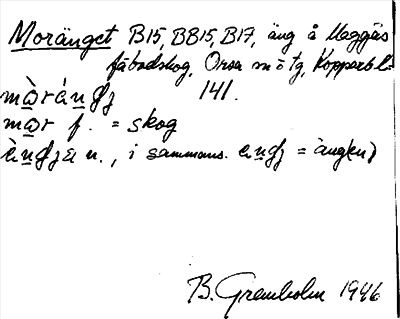 Moränget B15, BB15, B17, äng å Maggås
fäbodskog, Orsa sn o tg, Kopparb l.
141.
mo̲r f. = skog
n., i sammans. = äng(en)
B. Gramholm 1946